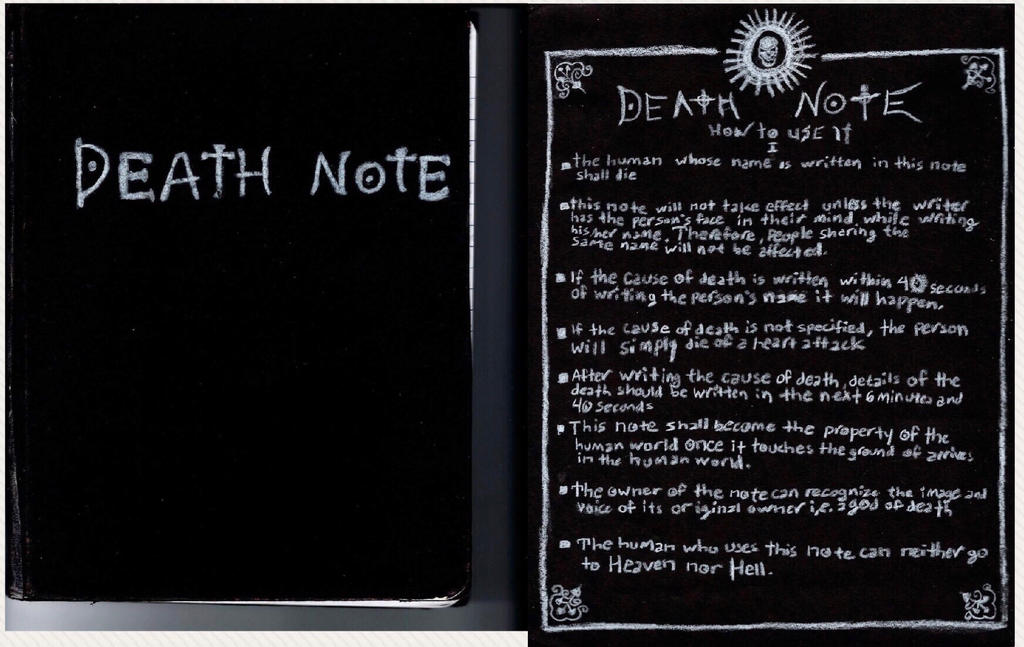 DEATH NOTE
DEATH NOTE
How to USE It
I
the human whose name is written in this note
shall die
this note will not take effect unless the writer
has the person's face in their mind while writing
his/her name. Therefore, people sharing the
same name will not be affected.
If the cause of death is written within 40 seconds
of writing the person's name it will happen.
If the cause of death is not specified, the person
will simply die of a heart attack
After writing the cause of death, details of the
death should be written in the next 6 minutes and
40 seconds
This note shall become the property of the
human world once it touches the ground of arrives
in the human world.
The owner of the note can recognize the image and
voice of its original owner i,e. a god of death
The human who uses this note can neither go
to Heaven nor Hell.